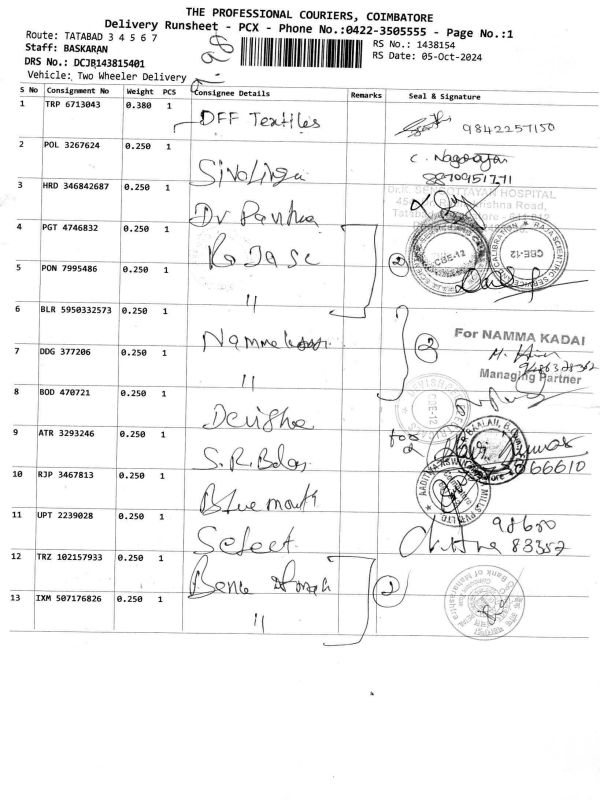 THE PROFESSIONAL COURIERS, COIMBATORE
Delivery Runsheet - PCX - Phone No.:0422-3505555 - Page No.:1
Route: TATABAD 3 4 5 6 7
Staff: BASKARAN
DRS No.: DCJB143815401
Vehicle: Two Wheeler Delivery
RS No.: 1438154
RS Date: 05-Oct-2024
S No Consignment No Weight PCS Consignee Details Remarks Seal & Signature
1 TRP 6713043 0.380 1 DFF Textiles 9842257150
2 POL 3267624 0.250 1 Sivalinga C. Nagarajan
8870951771
3 HRD 346842687 0.250 1 Dr
Dr.K. SENTHOTTAYAN HOSPITAL
4 PGT 4746832 0.250 1 2
CBE-12
CBE-12
5 PON 7995486 0.250 1 "
6 BLR 5950332573 0.250 1 Namma 2
For NAMMA KADAI
7 DDG 377206 0.250 1 "
Managing Partner
8 BOD 470721 0.250 1
CBE-12
9 ATR 3293246 0.250 1 S.R. for
10 RJP 3467813 0.250 1 Blue
66610
11 UPT 2239028 0.250 1 Select 98650
83357
12 TRZ 102157933 0.250 1
Bank of Maharashtra
13 IXM 507176826 0.250 1 "